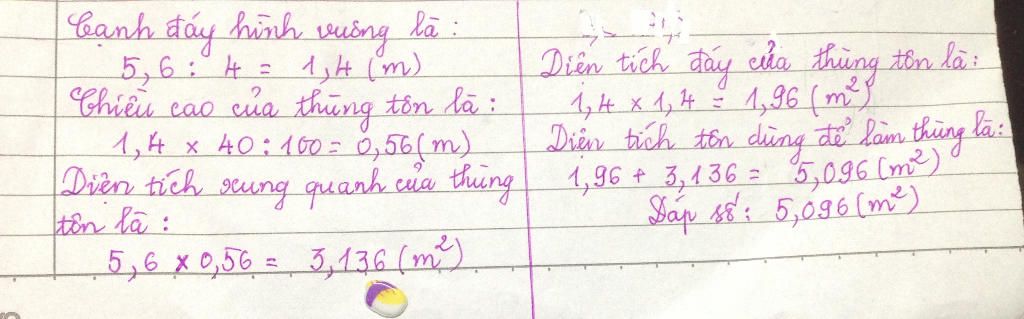 Cạnh đáy hình vuông là :
5,6 : 4 = 1,4 (m)
Chiều cao của thùng tôn là :
1,4 x 40 : 100 = 0,56 (m)
Diện tích xung quanh của thùng
tôn là :
5,6 x 0,56 = 3,136 (m²)
Diện tích đáy của thùng tôn là :
1,4 x 1,4 = 1,96 (m²)
Diện tích tôn dùng để làm thùng là :
1,96 + 3,136 = 5,096 (m²)
Đáp số : 5,096 (m²)